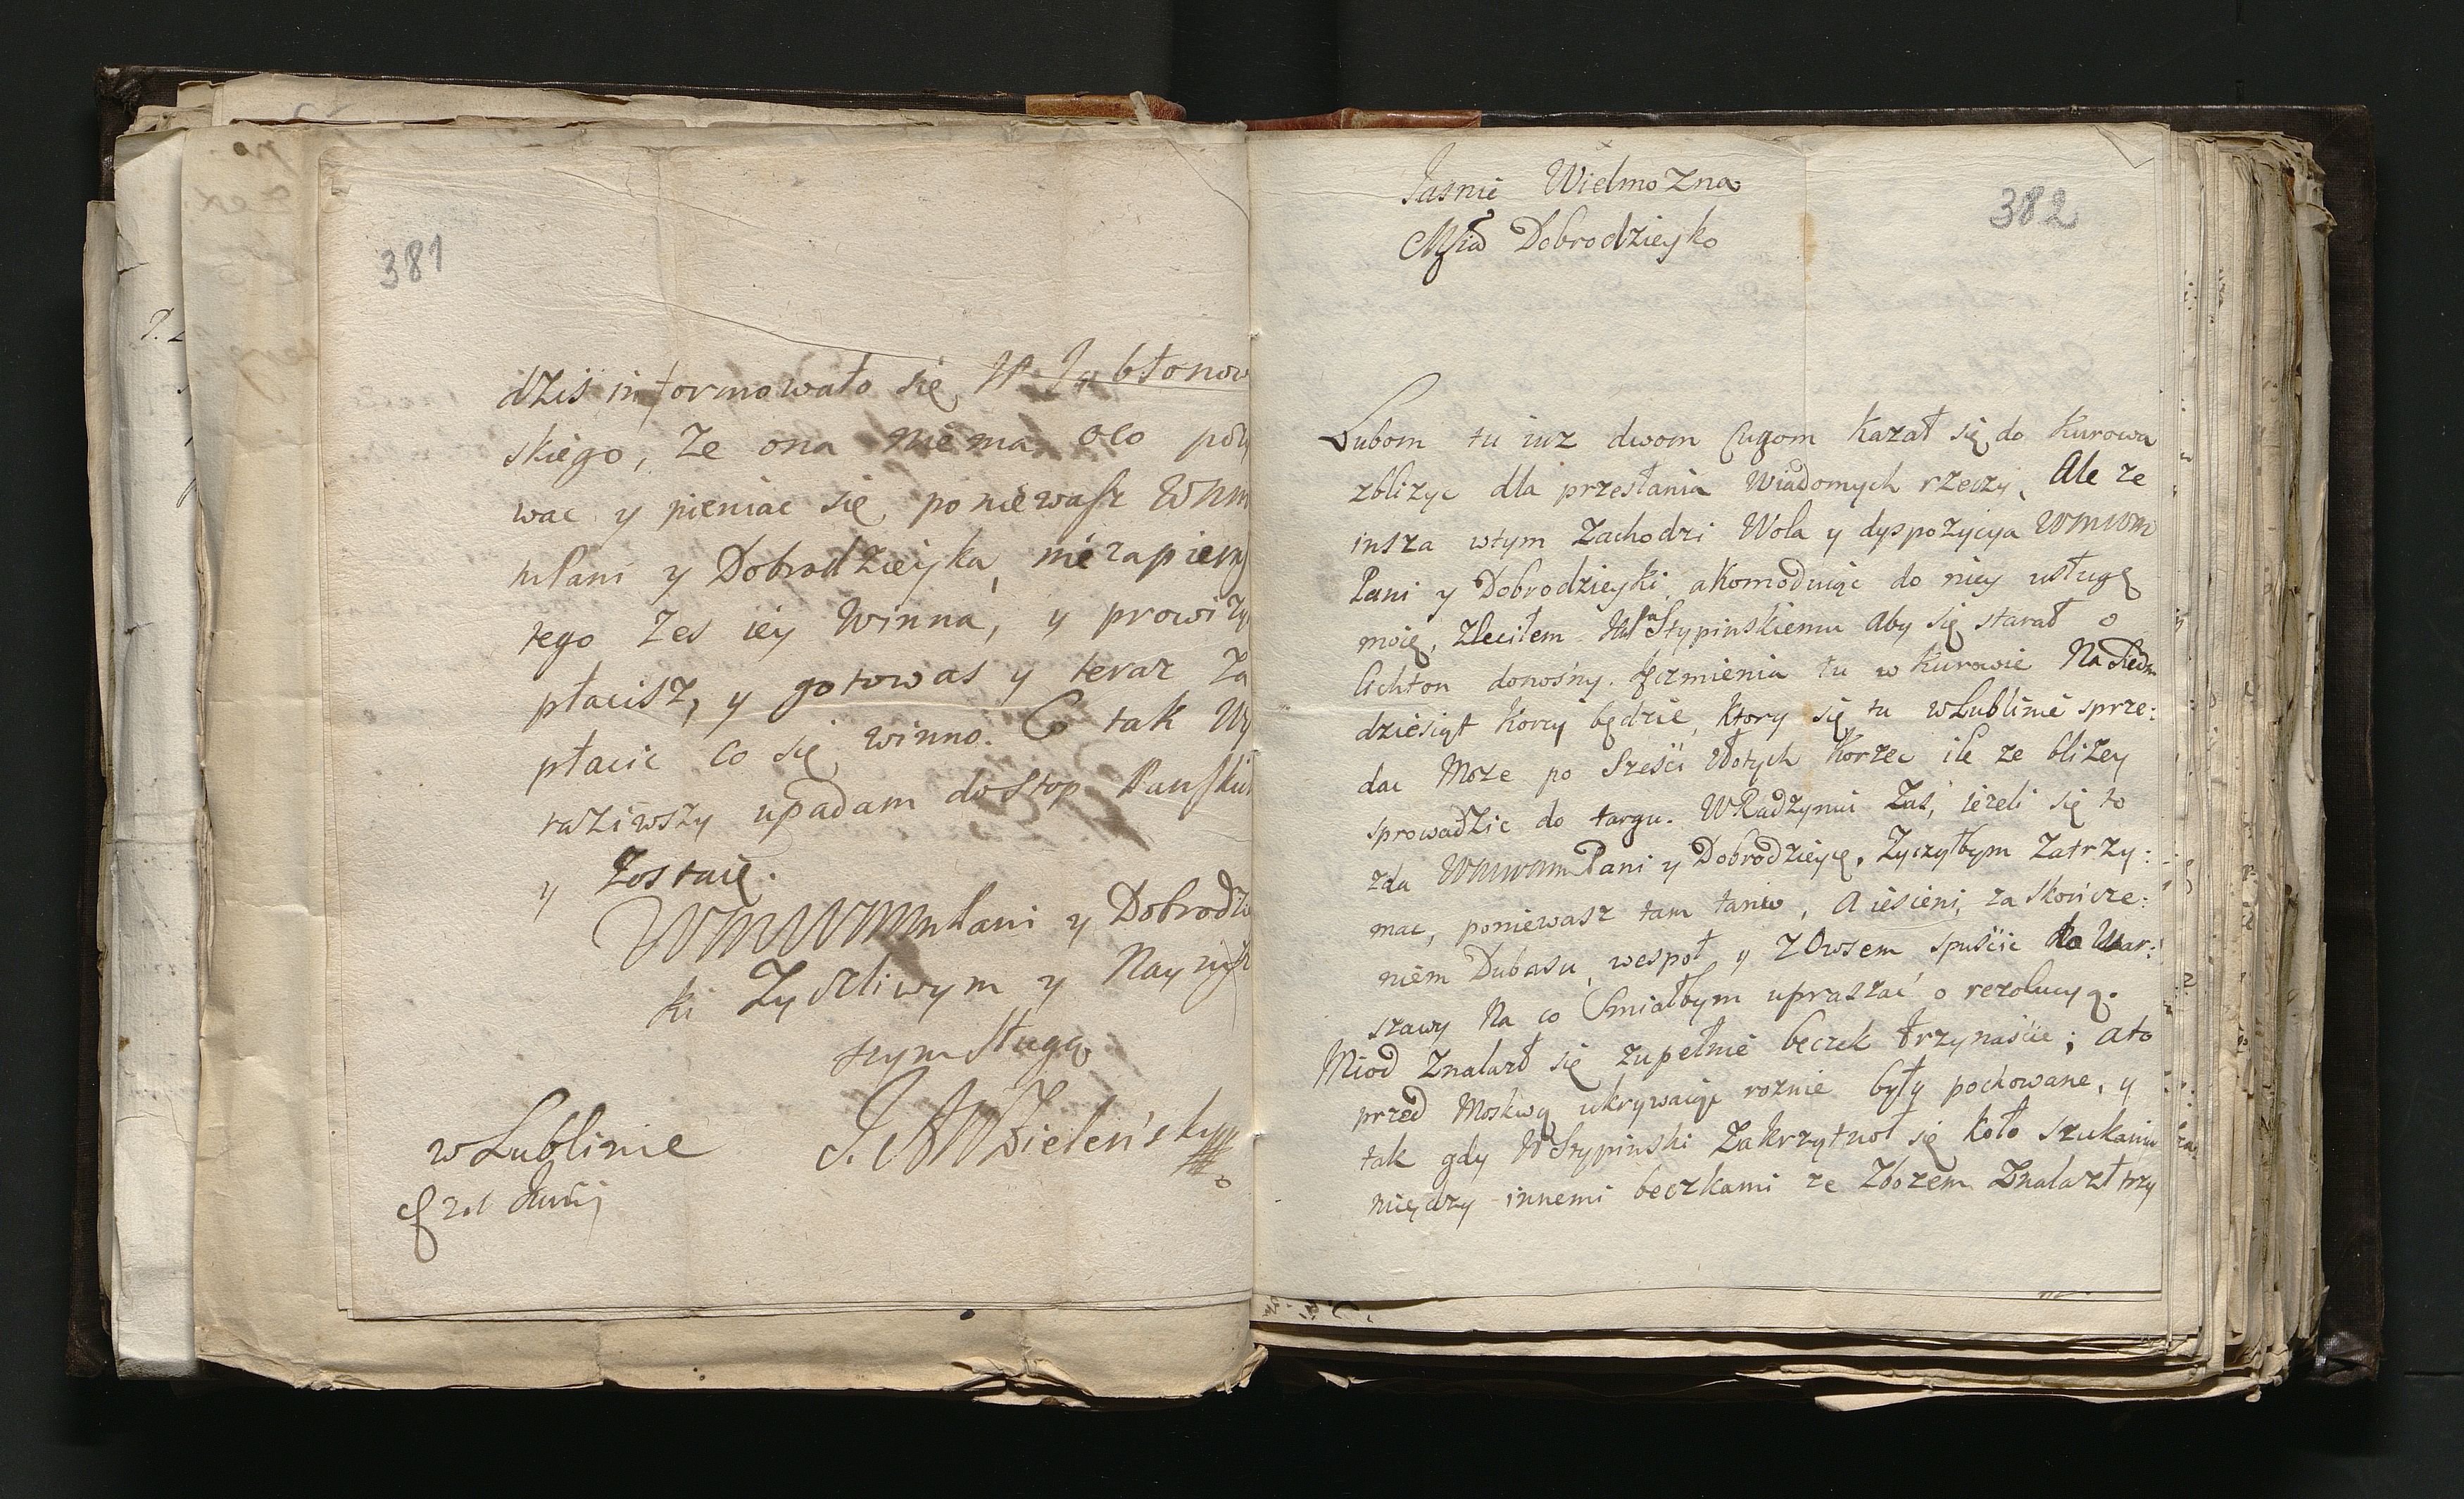 381
dziś informowało się W Jabłonow
skiego, Ze ona niema oco poz
wac y pieniac się poniewasz WMM
mPani y Dobrodzieyka, niezapiera
tego Zes iey Winna, y prowizy
płacisz, y gotowas y teraz Za
płacic Co się winno. Co tak Wy
raziwszy upadam do stop Panskich
y Zostaię.
WMWMmPani y Dobrodzie
ki Zyczliwym y Nayniż
szym Sługą
w Lublinie
21 Junij
382
Jasnie WielmoZna
Msia Dobrodzieyko
Lubom tu iuz dwom Cugom Kazał się do Kurowa
zblizyc dla przesłania Wiadomych rzeczy, Ale ze
insza wtym Zachodzi Wola y dyspozycya WMWM
Pani y Dobrodzieyki, akomoduiąc do niey usługę
moię, Zleciłem Stypinskiemu Aby się starał o
donośny. Jęczmienia tu w Kurowie Na Siedm
dziesiąt Korcy będzie, Ktory się tu wLublinie sprze:
dac Moze po Sześci Złotych Korzec ile ze bliZey
sprowadzic do targu. WRadzyniu Zas, iezeli się to
zda WMWMPani y Dobrodzieyce, Zyczyłbym Zatrzy:
mac, poniewasz tam tanio, A iesieni, za Skończe:
niem Dubasu, wespoł y ZOwsem spuścic do War:
szawy Na co Smiałbym upraszać o rezolucyą.
Miod Znalazł się Zupełnie beczek trzynaście; Ato
przed Moskwą ukrywaiąc roznie były pochowane, y
tak gdy W Stypinski Zakrzytnoł się Koło szukania
między innemi beczkami ze Zbozem Znalazł trzy